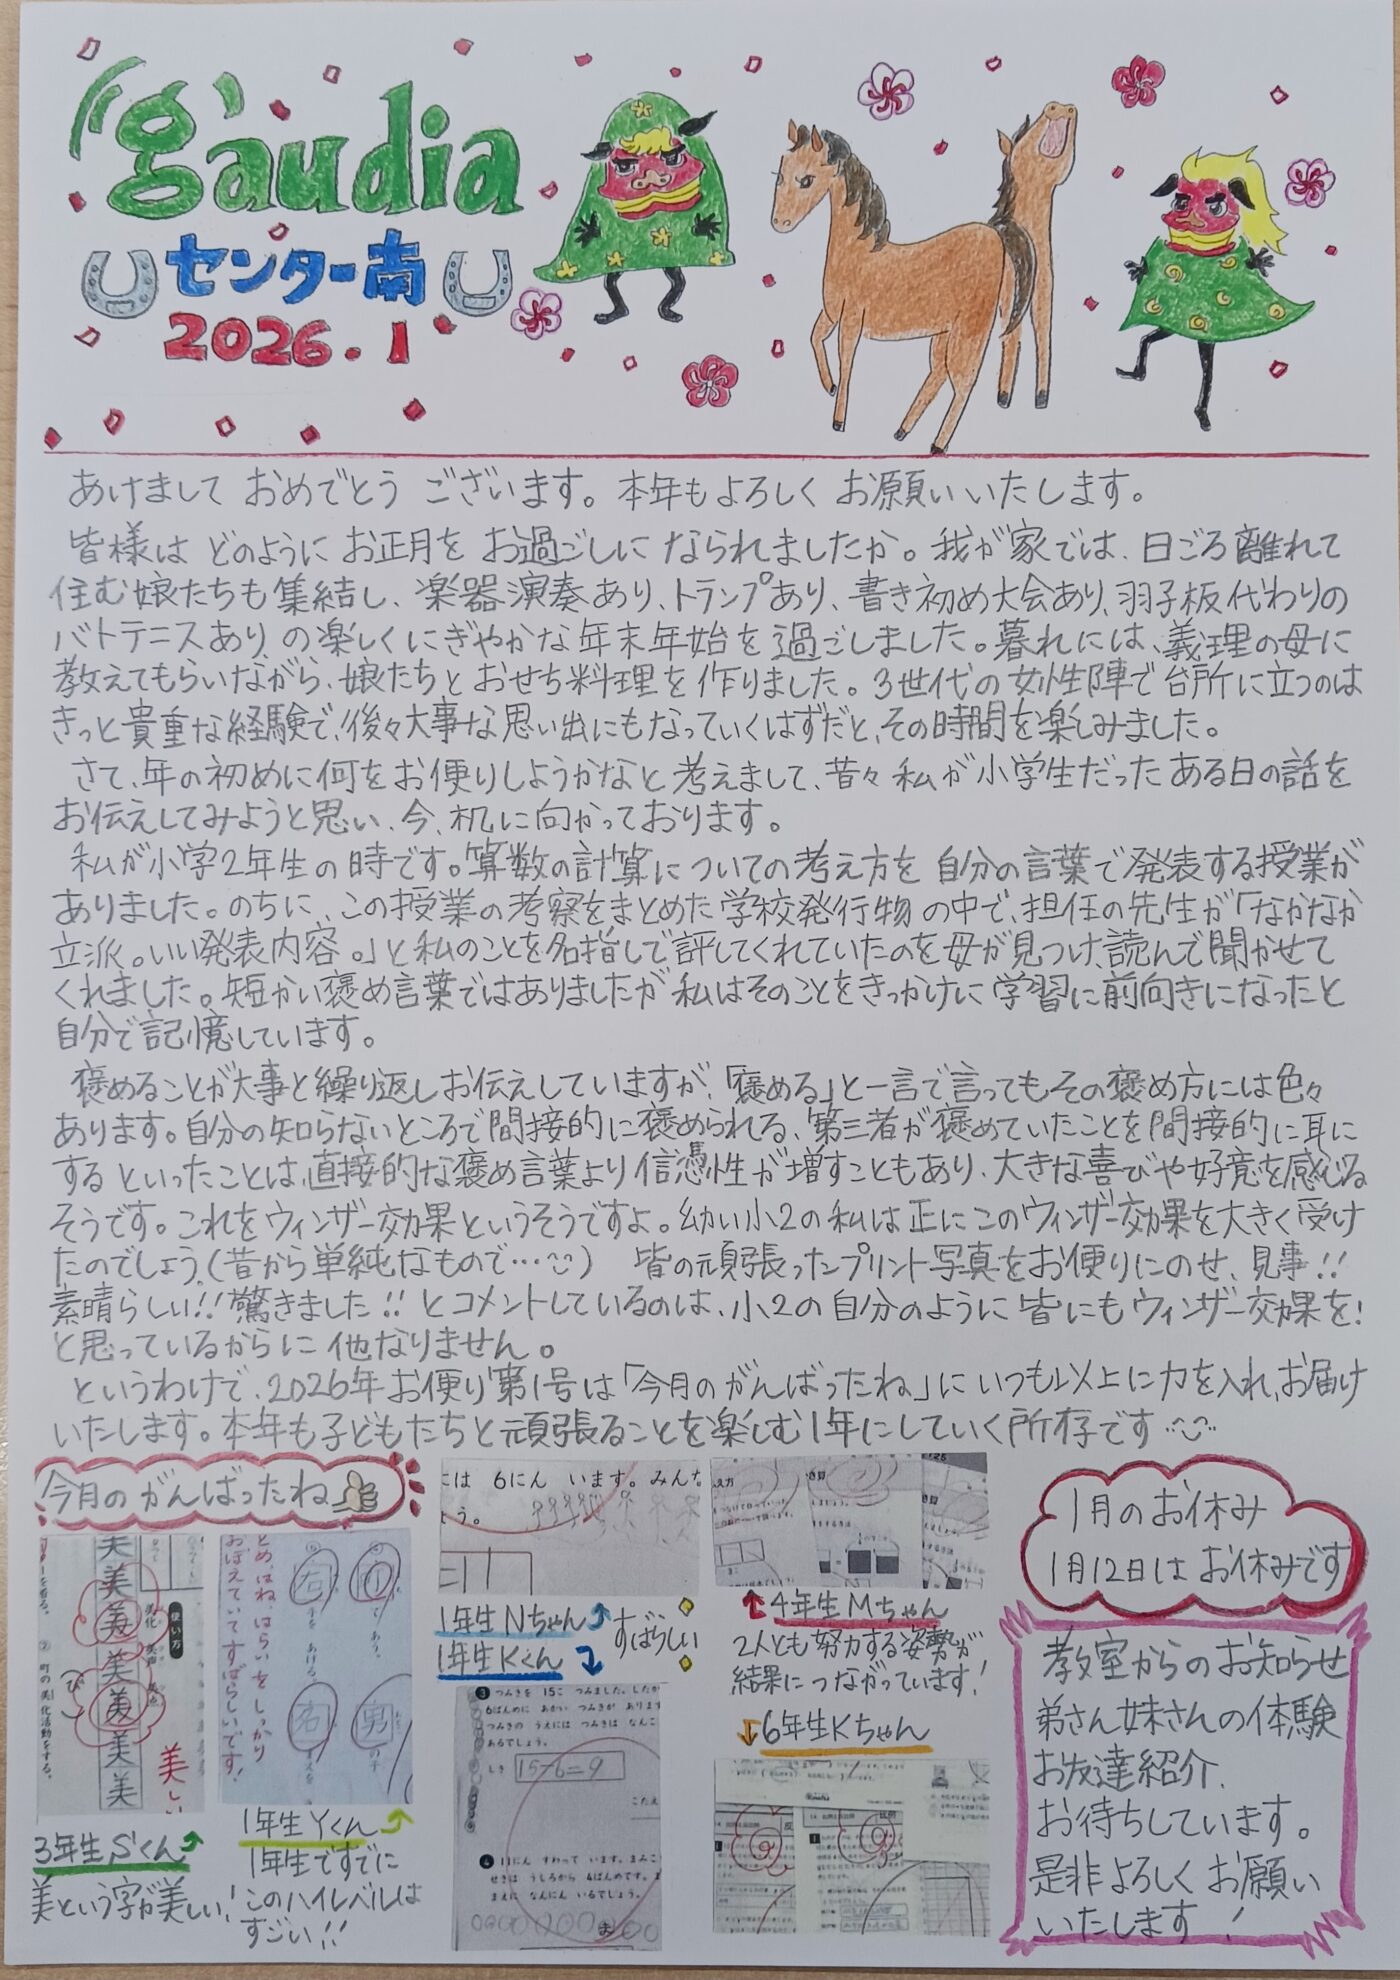 gaudia
センター南
2026.1
あけまして おめでとう ございます。本年もよろしく お願いいたします。
皆様は どのように お正月を お過ごしに なられましたか。我が家では、日ごろ離れて
住む娘たちも集結し、楽器演奏あり、トランプあり、書き初め大会あり、羽子板代わりの
バトテニスあり、の楽しくにぎやかな年末年始を過ごしました。暮れには、義理の母に
教えてもらいながら、娘たちとおせち料理を作りました。3世代の女性陣で台所に立つのは
きっと貴重な経験で、後々大事な思い出にもなっていくはずだと、その時間を楽しみました。
さて、年の初めに何をお便りしようかなと考えまして、昔々私が小学生だったある日の話を
お伝えしてみようと思い、今、机に向かっております。
私が小学2年生の時です。算数の計算についての考え方を自分の言葉で発表する授業が
ありました。のちに、この授業の考察をまとめた学校発行物の中で、担任の先生が「なかなか
立派。いい発表内容。」と私のことを名指しで評してくれていたのを母が見つけ、読んで聞かせて
くれました。短かい褒め言葉ではありましたが私はそのことをきっかけに学習に前向きになったと
自分で記憶しています。
褒めることが大事と繰り返しお伝えしていますが、「褒める」と一言で言ってもその褒め方には色々
あります。自分の知らないところで間接的に褒められる、第三者が褒めていたことを間接的に耳に
するといったことは、直接的な褒め言葉より信憑性が増すこともあり、大きな喜びや好意を感じる
そうです。これをウィンザー効果というそうですよ。幼い小2の私は正にこのウィンザー効果を大きく受け
たのでしょう(昔から単純なもので…) 皆の頑張ったプリント写真をお便りにのせ、見事!!
素晴らしい!!驚きました!!とコメントしているのは、小2の自分のように皆にもウィンザー効果を!
と思っているからに他なりません。
というわけで、2026年お便り第1号は「今月のがんばったね」にいつも以上に力を入れ、お届け
いたします。本年も子どもたちと頑張ることを楽しむ1年にしていく所存です
今月のがんばったね
美
美
美
美
美
美
美
使い方
町の美化活動をする。
美しい
とめ、はね、はらいをしっかり
おぼえていてすばらしいです!
右
石
男
の子
3年生Sくん
美という字が美しい!
1年生Yくん
1年生ですでに
このハイレベルは
すごい!!
には 6にん います。みんな
1年生Nちゃん
1年生Kくん
すばらしい
つみきを 15こ つみました。したか
6ばんめに あかい つみきが あります
つみきの うえには つみきは なんこ
あるでしょう。
しき 15-6=9
こたえ
11にん すわって います。まみこ
せきは うしろから 4ばんめです。ま
まえに なんにん いるでしょう。
4年生Mちゃん
2人とも努力する姿勢が
結果につながっています!
6年生Kちゃん
1月のお休み
1月12日は お休みです
教室からのお知らせ
弟さん妹さんの体験
お友達紹介、
お待ちしています。
是非よろしくお願い
いたします!